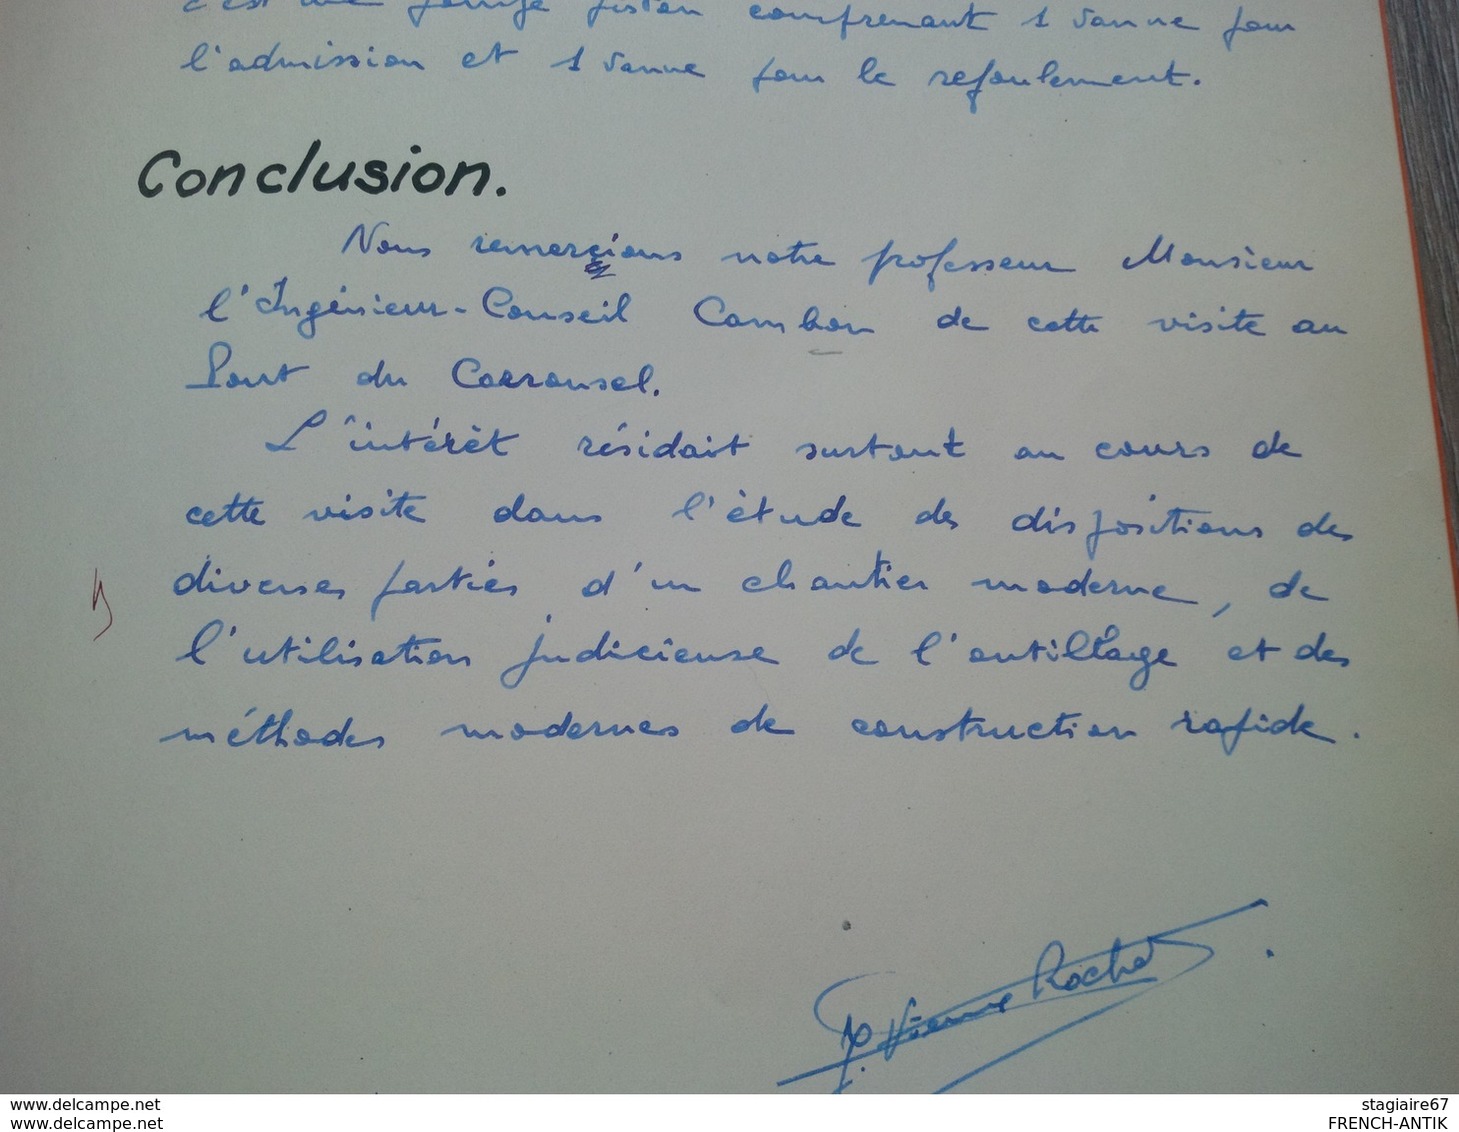 c'est une pompe piston comprenant 1 vanne pour
l'admission et 1 vanne pour le refoulement.
Conclusion.
Nous remerçions notre professeur Monsieur
l'Ingénieur-Conseil Cambon de cette visite au
Pont du Carrousel.
L'intérêt résidait surtout au cours de
cette visite dans l'étude des dispositions des
diverses parties d'un chantier moderne, de
l'utilisation judicieuse de l'outillage et des
méthodes modernes de construction rapide.
Vienne Rochat
www.delcampe.net
www.delcampe.net
stagiaire67
FRENCH-ANTIK